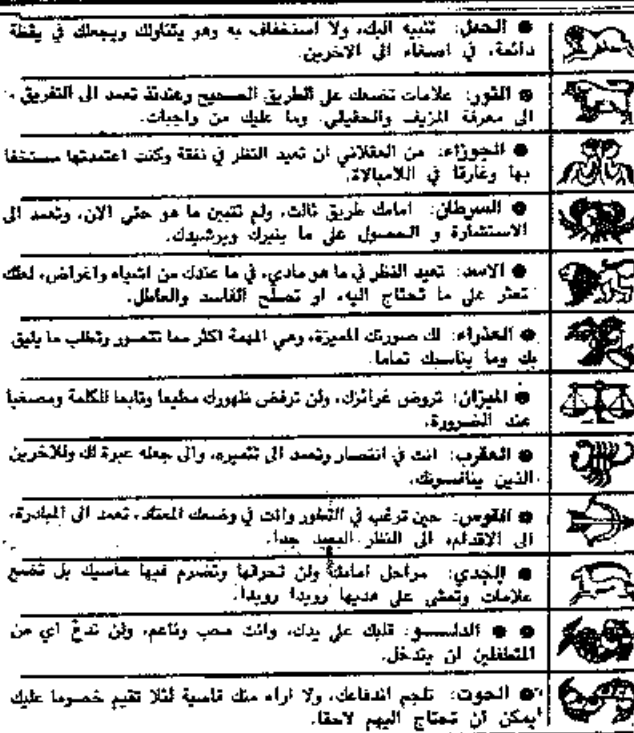 ● الحمل: تنبيه اليك، ولا استخفاف به وهو يتناولك ويجعلك في يقظة
دائمة، في اصغاء الى الاخرين.
● الثور: علامات تضعك على الطريق الصحيح وعندئذ تعمد الى التفريق
الى معرفة المزيف والحقيقي. وما عليك من واجبات.
● الجوزاء: من العقلاني ان تعيد النظر في نفقة وكنت اعتمدتها مستخفا
بها وغارقا في اللامبالاة.
● السرطان: امامك طريق ثالث، ولم تتبين ما هو حتى الان، وتعمد الى
الاستشارة و الحصول على ما ينيرك ويرشدك.
● الاسد: تعيد النظر في ما هو مادي، في ما عندك من اشياء واغراض، لعلك
تعثر على ما تحتاج اليه، او تصلح الفاسد والعاطل.
● العذراء: لك صورتك المميزة، وهي المهمة اكثر مما تتصور وتطلب ما يليق
بك وما يناسبك تماما.
● الميزان: تروض غرائزك، ولن ترفض ظهورك مطيعا وتابعا للكلمة ومصغيا
عند الضرورة.
● العقرب: انت في انتصار وتعمد الى تثميره، والى جعله عبرة لك وللاخرين
الذين ينافسونك.
● القوس: حين ترغب في التطور وانت في وضعك المعتاد، تعمد الى المبادرة،
الى الاقدام، الى النظر البعيد جدا.
● الجدي: مراحل امامك ولن تحرقها وتضرم فيها ماسيك بل تضع
علامات وتمشي على هديها رويدا رويدا.
● ● الدلو: قلبك على يدك، وانت محب وناعم، ولن تدع اي من
المتطفلين ان يتدخل.
● الحوت: تلجم اندفاعك، ولا اراء منك قاسية لئلا تقيم خصوما عليك
يمكن ان تحتاج اليهم لاحقا.